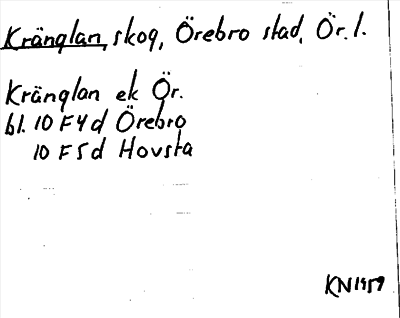 Kränglan, skog, Örebro stad, Ör. l.
Kränglan ek Ör.
bl. 10 F 4 d Örebro
10 F 5 d Hovsta
KN 1959